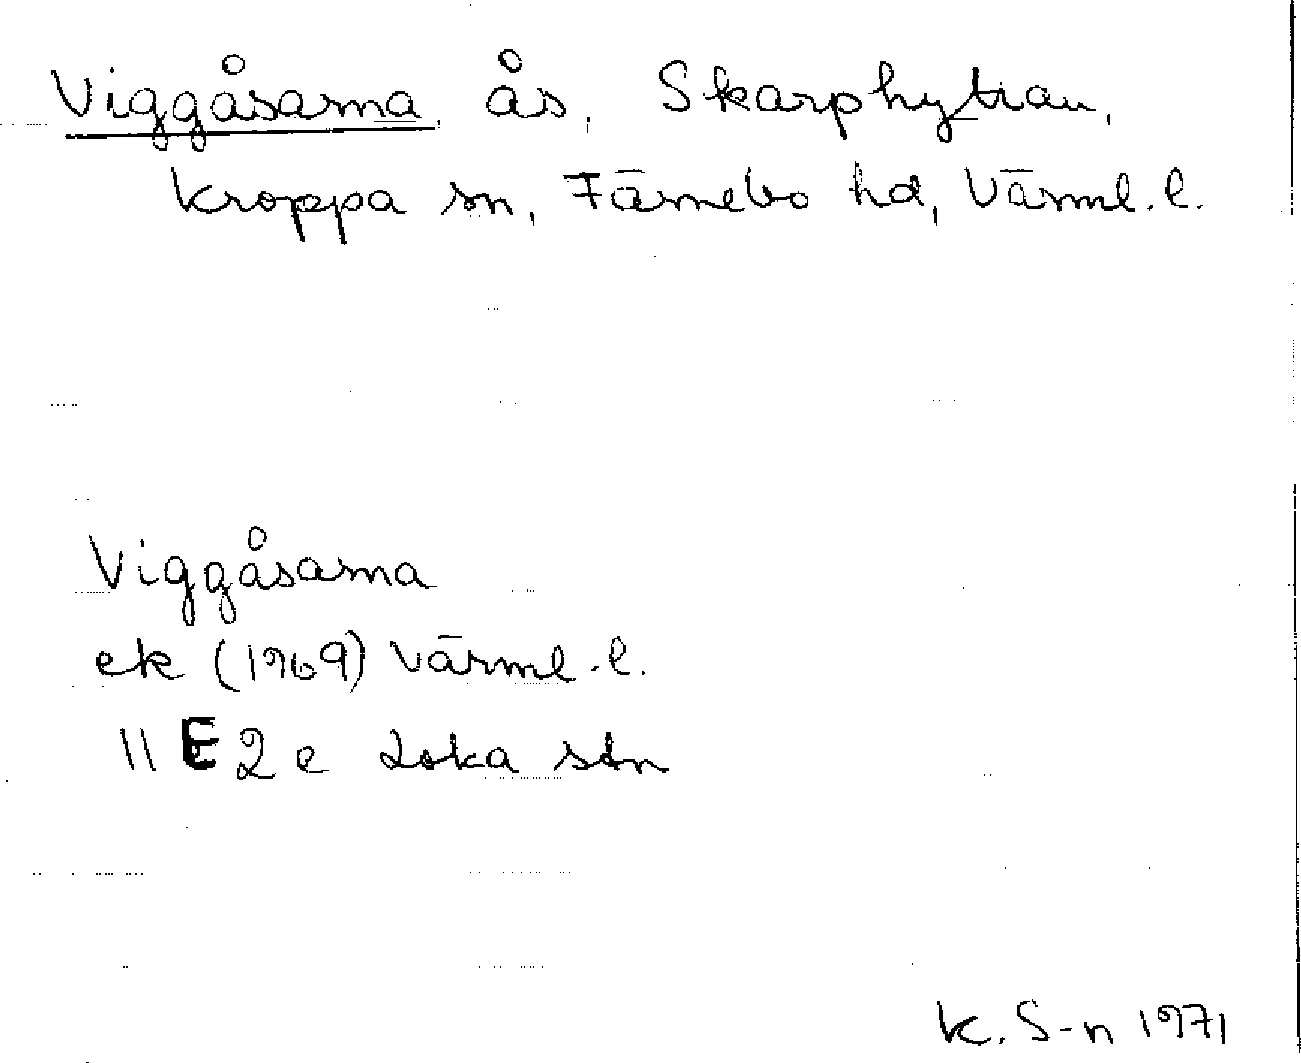 Viggåsarna, ås, Skarphyttan,
Kroppa sn, Färnebo hd, Värml. l.
Viggåsarna
ek (1969) Värml. l.
11 E 2 e Loka stn
K. S-n 1971